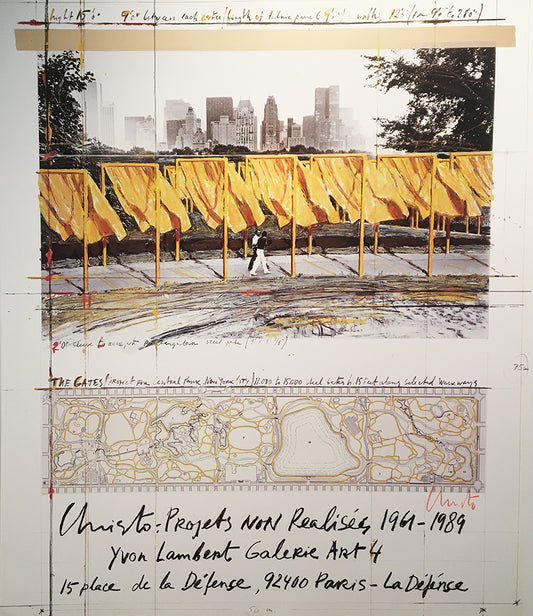 height 15'0" 9'0" between each gates/length of fabric panel 9'0"/ width 12'
2'00
THE GATES (PROJECT FOR Central Park, New York City) 11.000 to 15000 steel gates h. 15 feet along selected walkways
75
Christo
Christo - Projets NON Realisées 1961-1989
Yvon Lambert Galerie Art 4
15 place de la Défense, 92400 Paris - La Défense